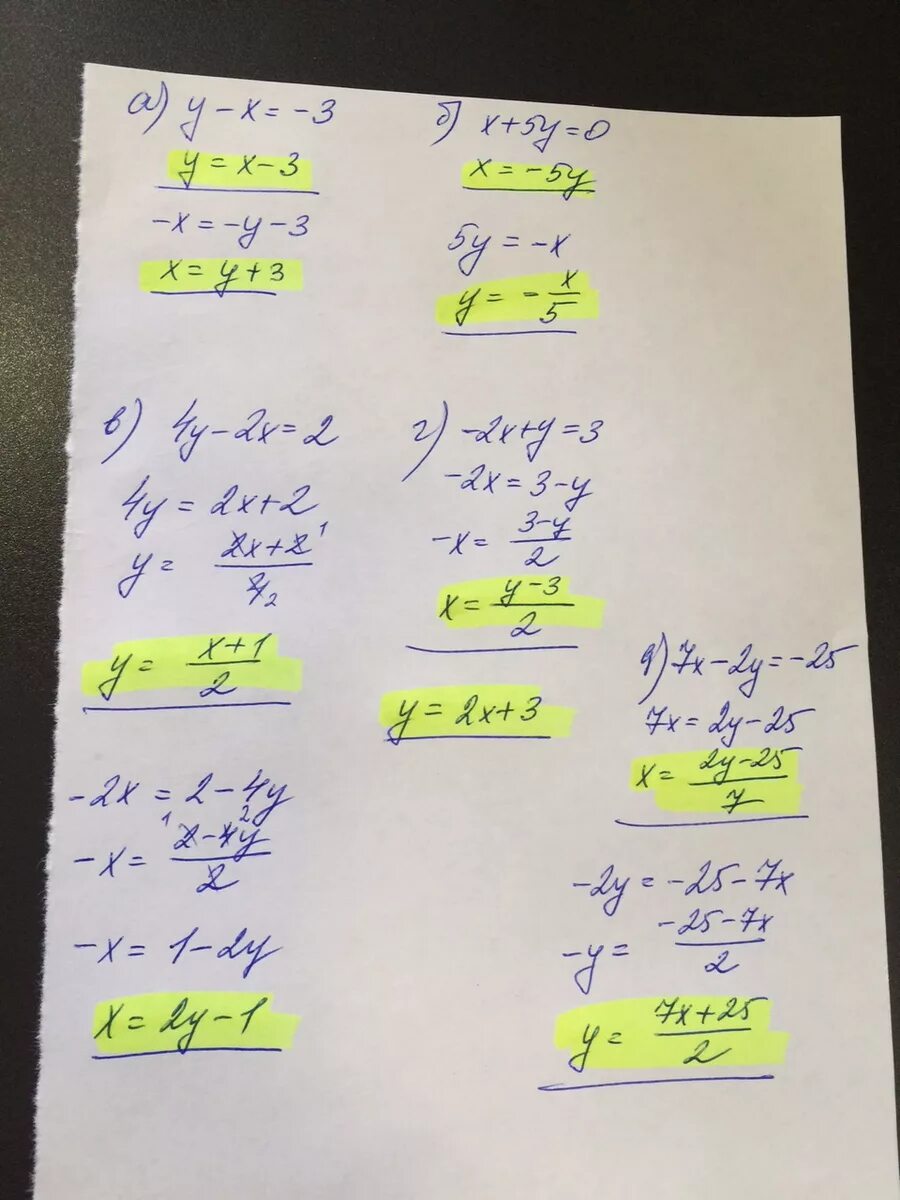 а) y - x = -3
y = x - 3
-x = -y - 3
x = y + 3
б) x + 5y = 0
x = -5y
5y = -x
y = -x/5
в) 4y - 2x = 2
4y = 2x + 2
y = (2x + 2 1)/(4 2)
y = (x + 1)/2
-2x = 2 - 4y
-x = (1 2 - 4 2 y)/2
-x = 1 - 2y
x = 2y - 1
г) -2x + y = 3
-2x = 3 - y
-x = (3 - y)/2
x = (y - 3)/2
y = 2x + 3
д) 7x - 2y = -25
7x = 2y - 25
x = (2y - 25)/7
-2y = -25 - 7x
-y = (-25 - 7x)/2
y = (7x + 25)/2